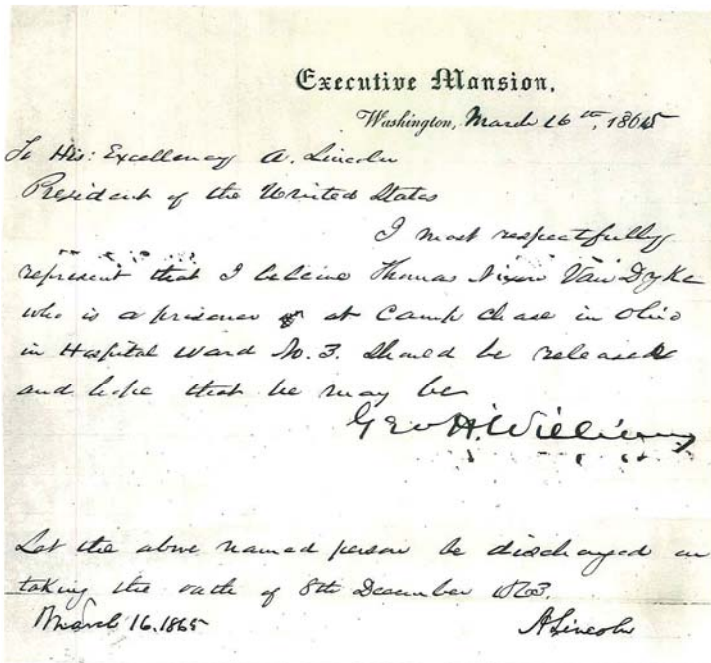 Executive Mansion,
Washington, March 16th, 1865
To His: Excellency A. Lincoln
President of the United States
I most respectfully
represent that I believe Thomas Nixon Van Dyke
who is a prisoner at Camp Chase in Ohio
in Hospital Ward No. 3. Should be released
and hope that he may be
Geo H. Williams
Let the above named person be discharged on
taking the oath of 8th December 1863.
March 16. 1865 A Lincoln